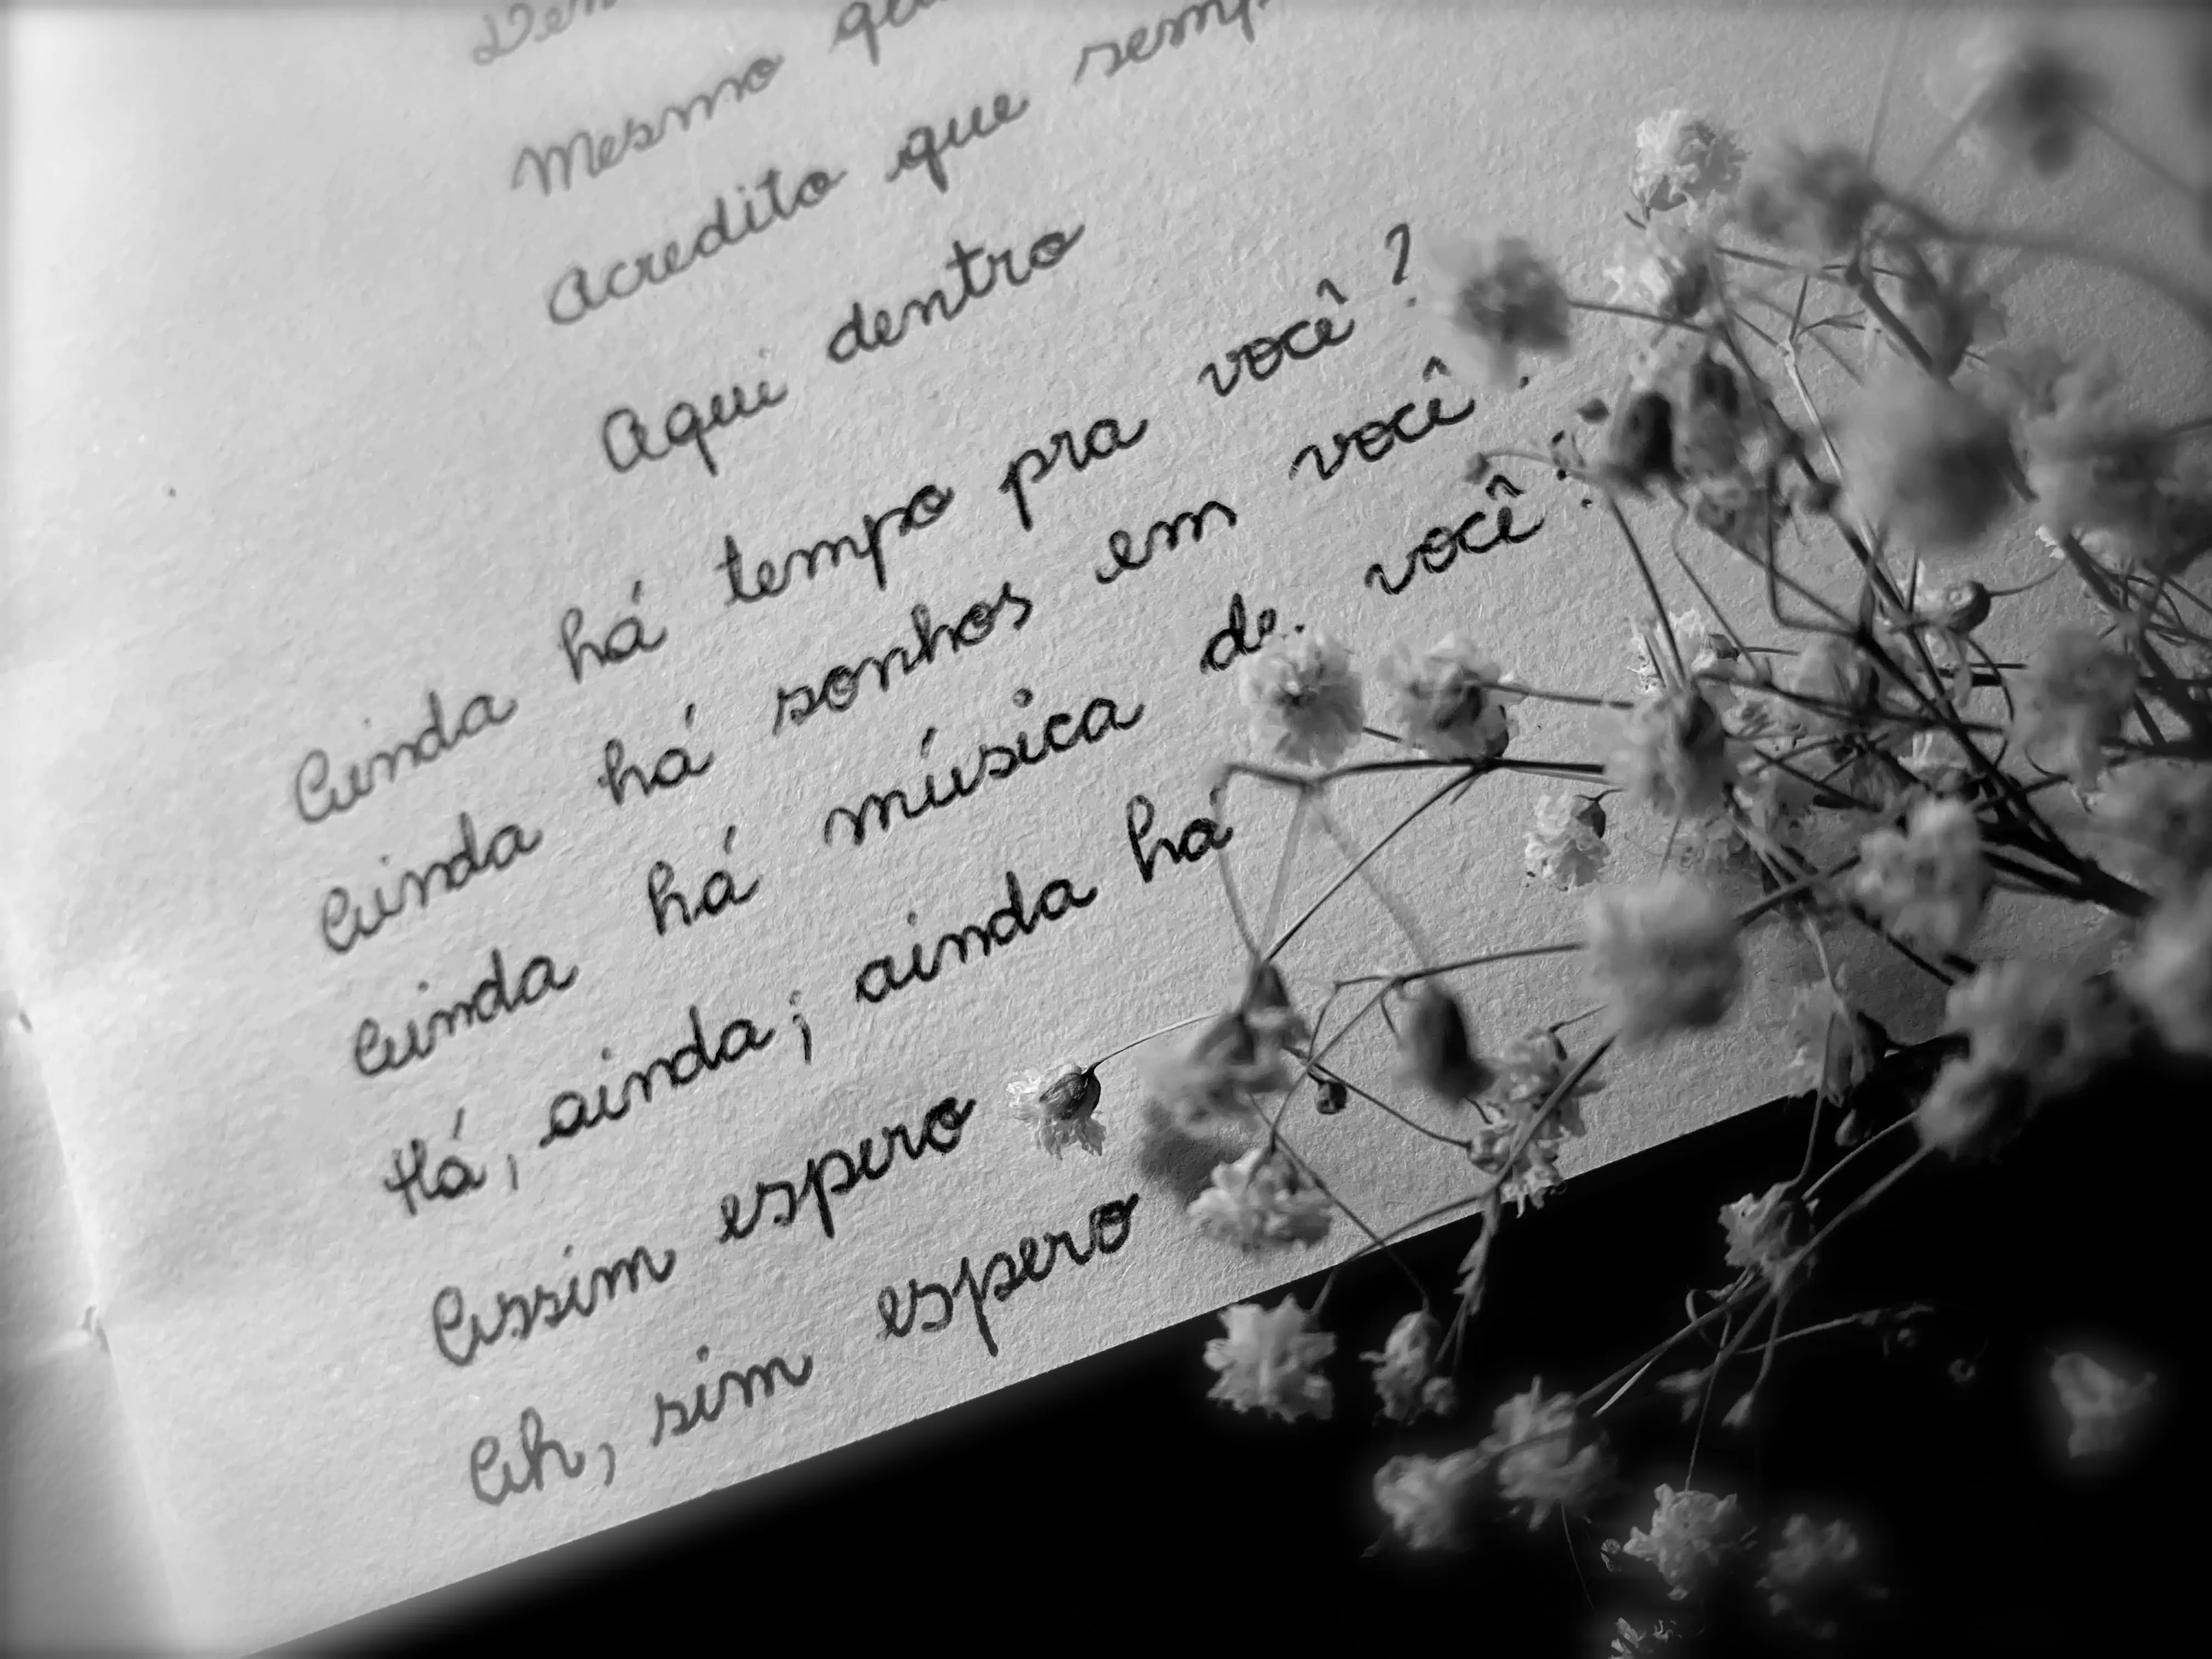 Mesmo
Acredito que
Aqui dentro
Ainda há tempo pra você?
Ainda há sonhos em você
Ainda há música de você
Há, ainda; ainda há
Assim espero
Ah, sim espero